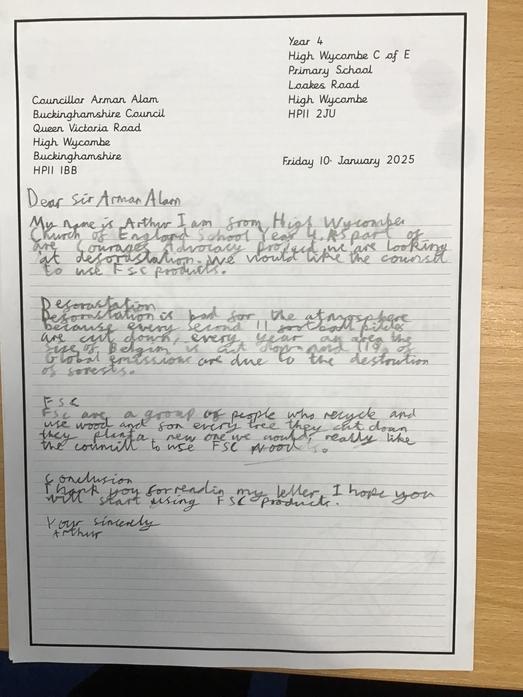 Year 4
High Wycombe C of E
Primary School
Loakes Road
High Wycombe
HP11 2JU
Councillor Arman Alam
Buckinghamshire Council
Queen Victoria Road
High Wycombe
Buckinghamshire
HP11 1BB
Friday 10 January 2025
Dear Sir Arman Alam
My name is Arthur I am from High Wycombe
Church of England School Year 4. As part of
are Courages Advocacy Project we are looking
at deforustation. We would like the counsil
to use FSC products.
Deforastation
Deforastation is bad for the atmosphere
because every second 11 football pitches
are cut down, every year an area the
size of Belgim is cut down and 11% of
Global emissions are due to the destrution
of forests.
FSC
FSC are a group of people who recycle and
use wood and for every tree they cut down
they plant a new one we would really like
the council to use FSC
Conclusion
Thank you for readin my letter. I hope you
will start using FSC products.
Your sincerely
Arthur